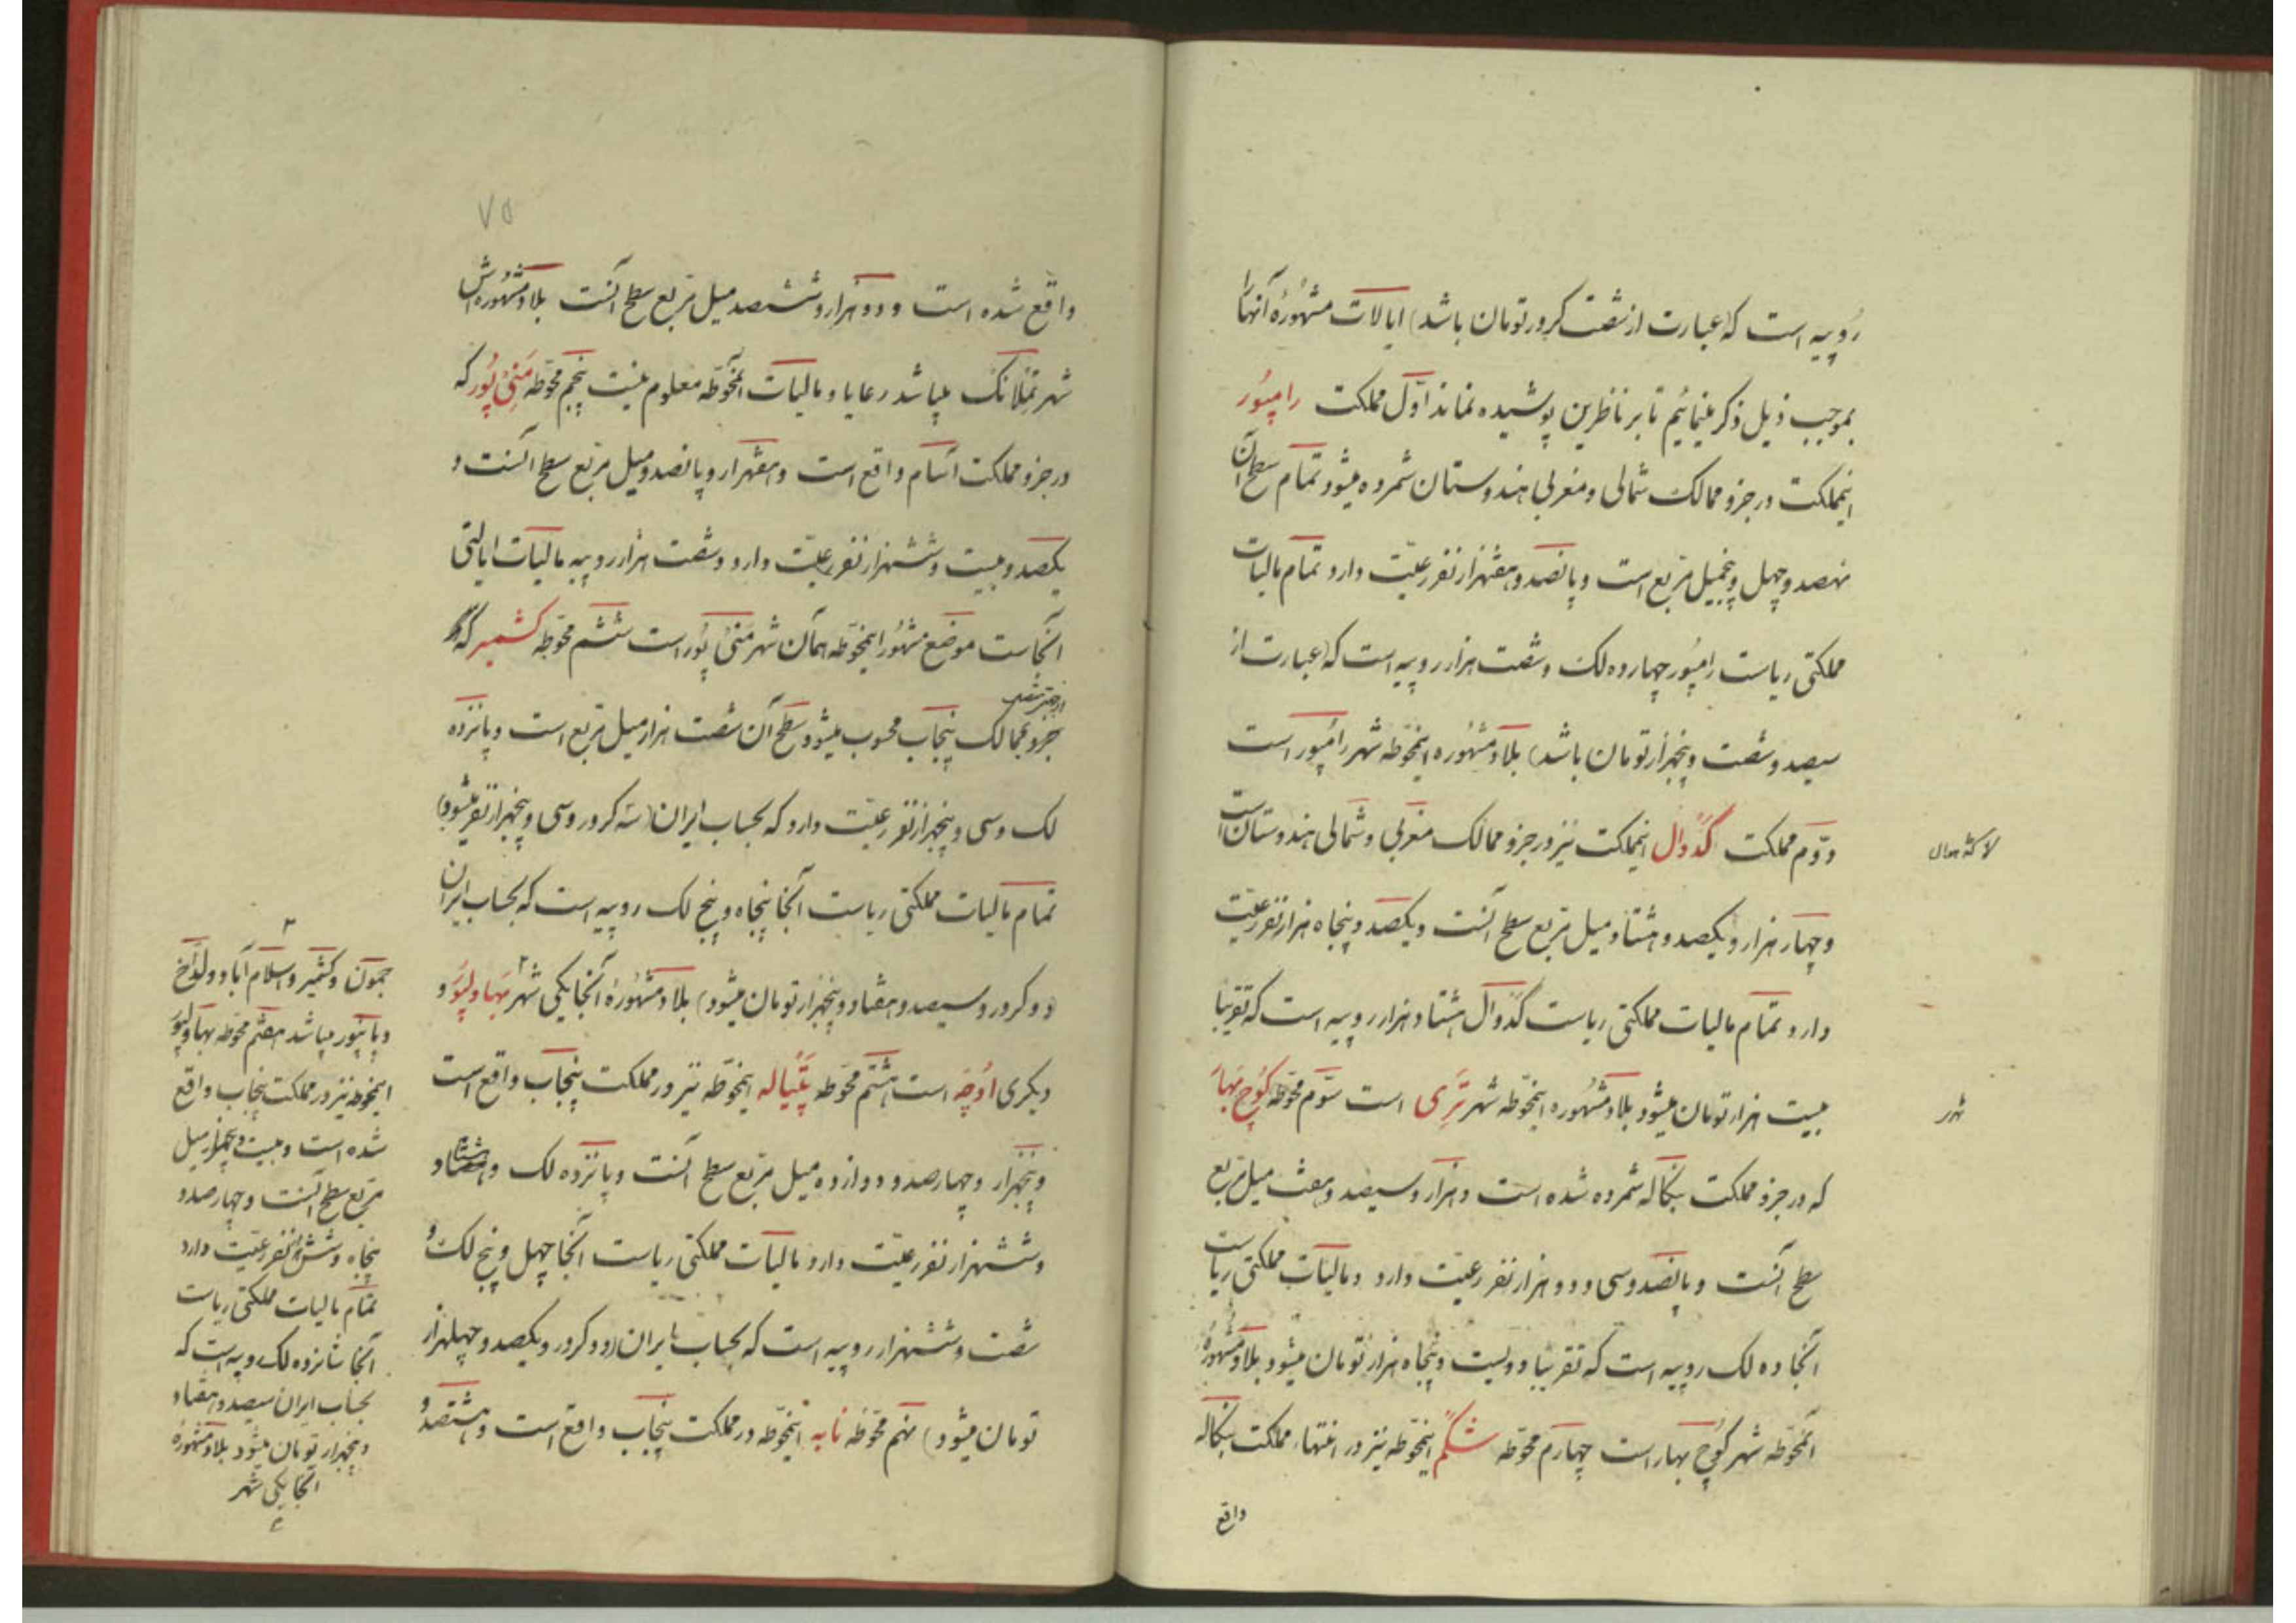 روپیه است که (عبارت از شصت کرور تومان باشد) ایالات مشهورهٔ آنها را
بموجب ذیل ذکر مینمائیم تا بر ناظرین پوشیده نماند اوّل مملکت رامپُور
اینمملکت در جزو ممالک شمالی و مغربی هندوستان شمرده میشود تمام سطح آن
نهصد و چهل و پنجمیل مربع است و پانصد و هفتهزار نفر رعیّت دارد تمام مالیات
مملکتی ریاست رامپُور چهارده لک و شصت هزار روپیه است که (عبارت از
سیصد و شصت و پنجهزار تومان باشد) بلاد مشهوره اینمحوّطه شهر رامپُور است
دوّم مملکت گدوال اینمملکت نیز در جزو ممالک مغربی و شمالی هندوستان است
و چهار هزار و یکصد و هشتاد میل مربع سطح آنست و یکصد و پنجاه هزار نفر رعیّت
دارد تمام مالیات مملکتی ریاست گدوال هشتاد هزار روپیه است که تقریباً
بیست هزار تومان میشود بلاد مشهوره اینمحوّطه شهر تَرِی است سوّم محوّطه کوچ بهار
که در جزو مملکت بنگاله شمرده شده است و هزار و سیصد و هفت میل مربع
سطح آنست و پانصد و سی و دو هزار نفر رعیّت دارد و مالیات مملکتی ریاست
آنجا ده لک روپیه است که تقریباً دویست و پنجاه هزار تومان میشود بلاد مشهورهٔ
آنمحوّطه شهر کوچ بهار است چهارم محوّطه شکّم اینمحوّطه نیز در انتهاء مملکت بنگاله
واقع
شهر
۷۵
واقع شده است و دو هزار و ششصد میل مربع سطح آنست بلاد مشهوره‌اش
شهر تملانگ میباشد رعایا و مالیات آنمحوّطه معلوم نیست پنجم محوّطه مَنی پُور که
در جزو مملکت آسام واقع است و هفتهزار و پانصد و میل مربع سطح آنست و
یکصد و بیست و ششهزار نفر رعیّت دارد و شصت هزار روپیه مالیات ایالتی
آنجاست موضع مشهور اینمحوّطه همان شهر منی پُور است ششم محوّطه کشمیر که
جزو ممالک پنجاب محسوب میشود سطح آن شصت هزار میل مربع است و پانزده
لک و سی و پنجهزار نفر رعیّت دارد که بحساب ایران (سه کرور و سی و پنجهزار نفر میشود)
تمام مالیات مملکتی ریاست آنجا پنجاه و پنج لک روپیه است که بحساب ایران
(دو کرور و سیصد و هفتاد و پنجهزار تومان میشود) بلاد مشهورهٔ آنجا یکی شهر ۲ بهاولپور و
دیگری اُوچَه است هشتم محوّطه پَتیاله اینمحوّطه نیز در مملکت پنجاب واقع است
و پنجهزار و چهارصد و دوازده میل مربع سطح آنست و پانزده لک و هشتاد
و ششهزار نفر رعیّت دارد مالیات مملکتی ریاست آنجا چهل و پنج لک و
شصت و ششهزار روپیه است که بحساب ایران (دو کرور و یکصد و چهلهزار
تومان میشود) نهم محوّطه نابه اینمحوّطه در مملکت پنجاب واقع است و هشتصد و
۲
جمون و کشمیر و اسلام آباد و لداخ
و پانپور میباشد هفتم محوّطه بهاولپور
اینمحوّطه نیز در مملکت پنجاب واقع
شده است و بیست و پنجهزار میل
مربع سطح آنست و چهارصد و
پنجاه و شش هزار نفر رعیّت دارد
تمام مالیات مملکتی ریاست
آنجا شانزده لک روپیه است که
بحساب ایران سیصد و هفتاد
و پنجهزار تومان میشود بلاد مشهورهٔ
آنجا یکی شهر